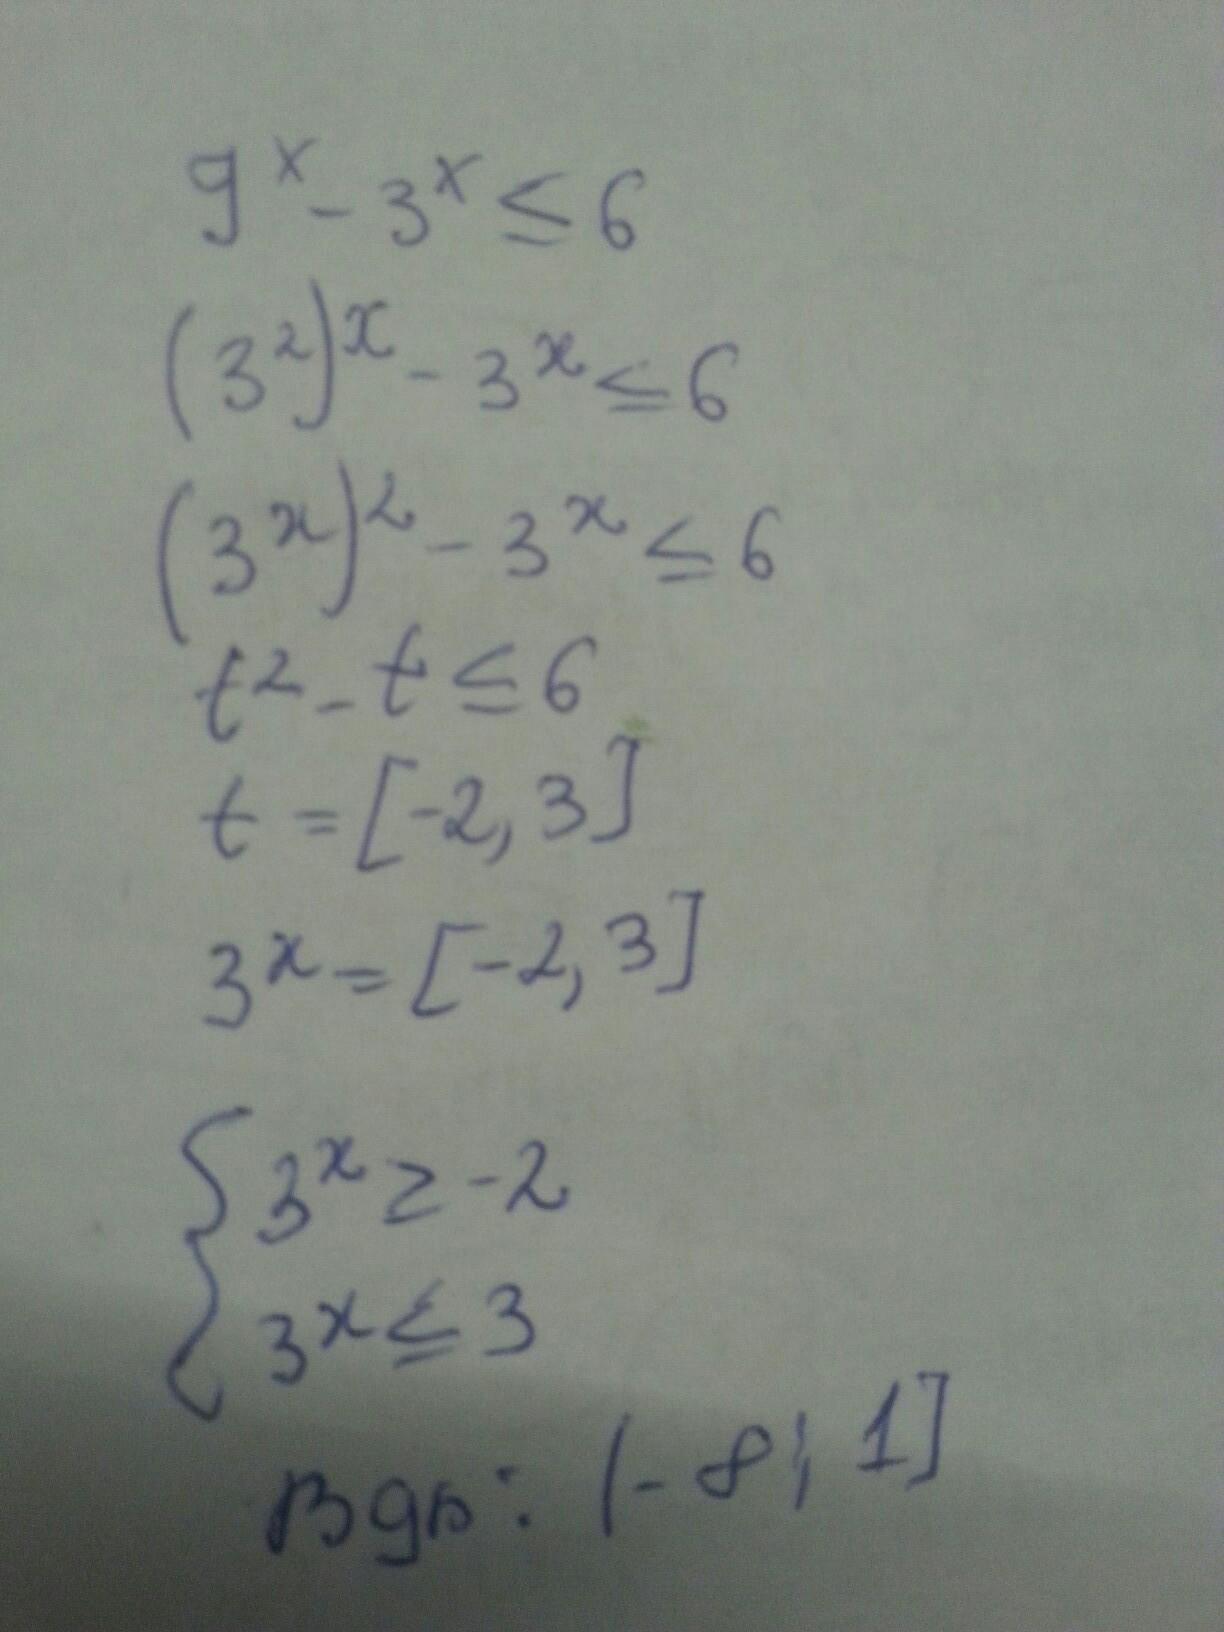 9^x - 3^x ≤ 6
(3^2)^x - 3^x ≤ 6
(3^x)^2 - 3^x ≤ 6
t^2 - t ≤ 6
t = [-2, 3]
3^x = [-2, 3]
{ 3^x ≥ -2
3^x ≤ 3
Вдп: (-∞; 1]